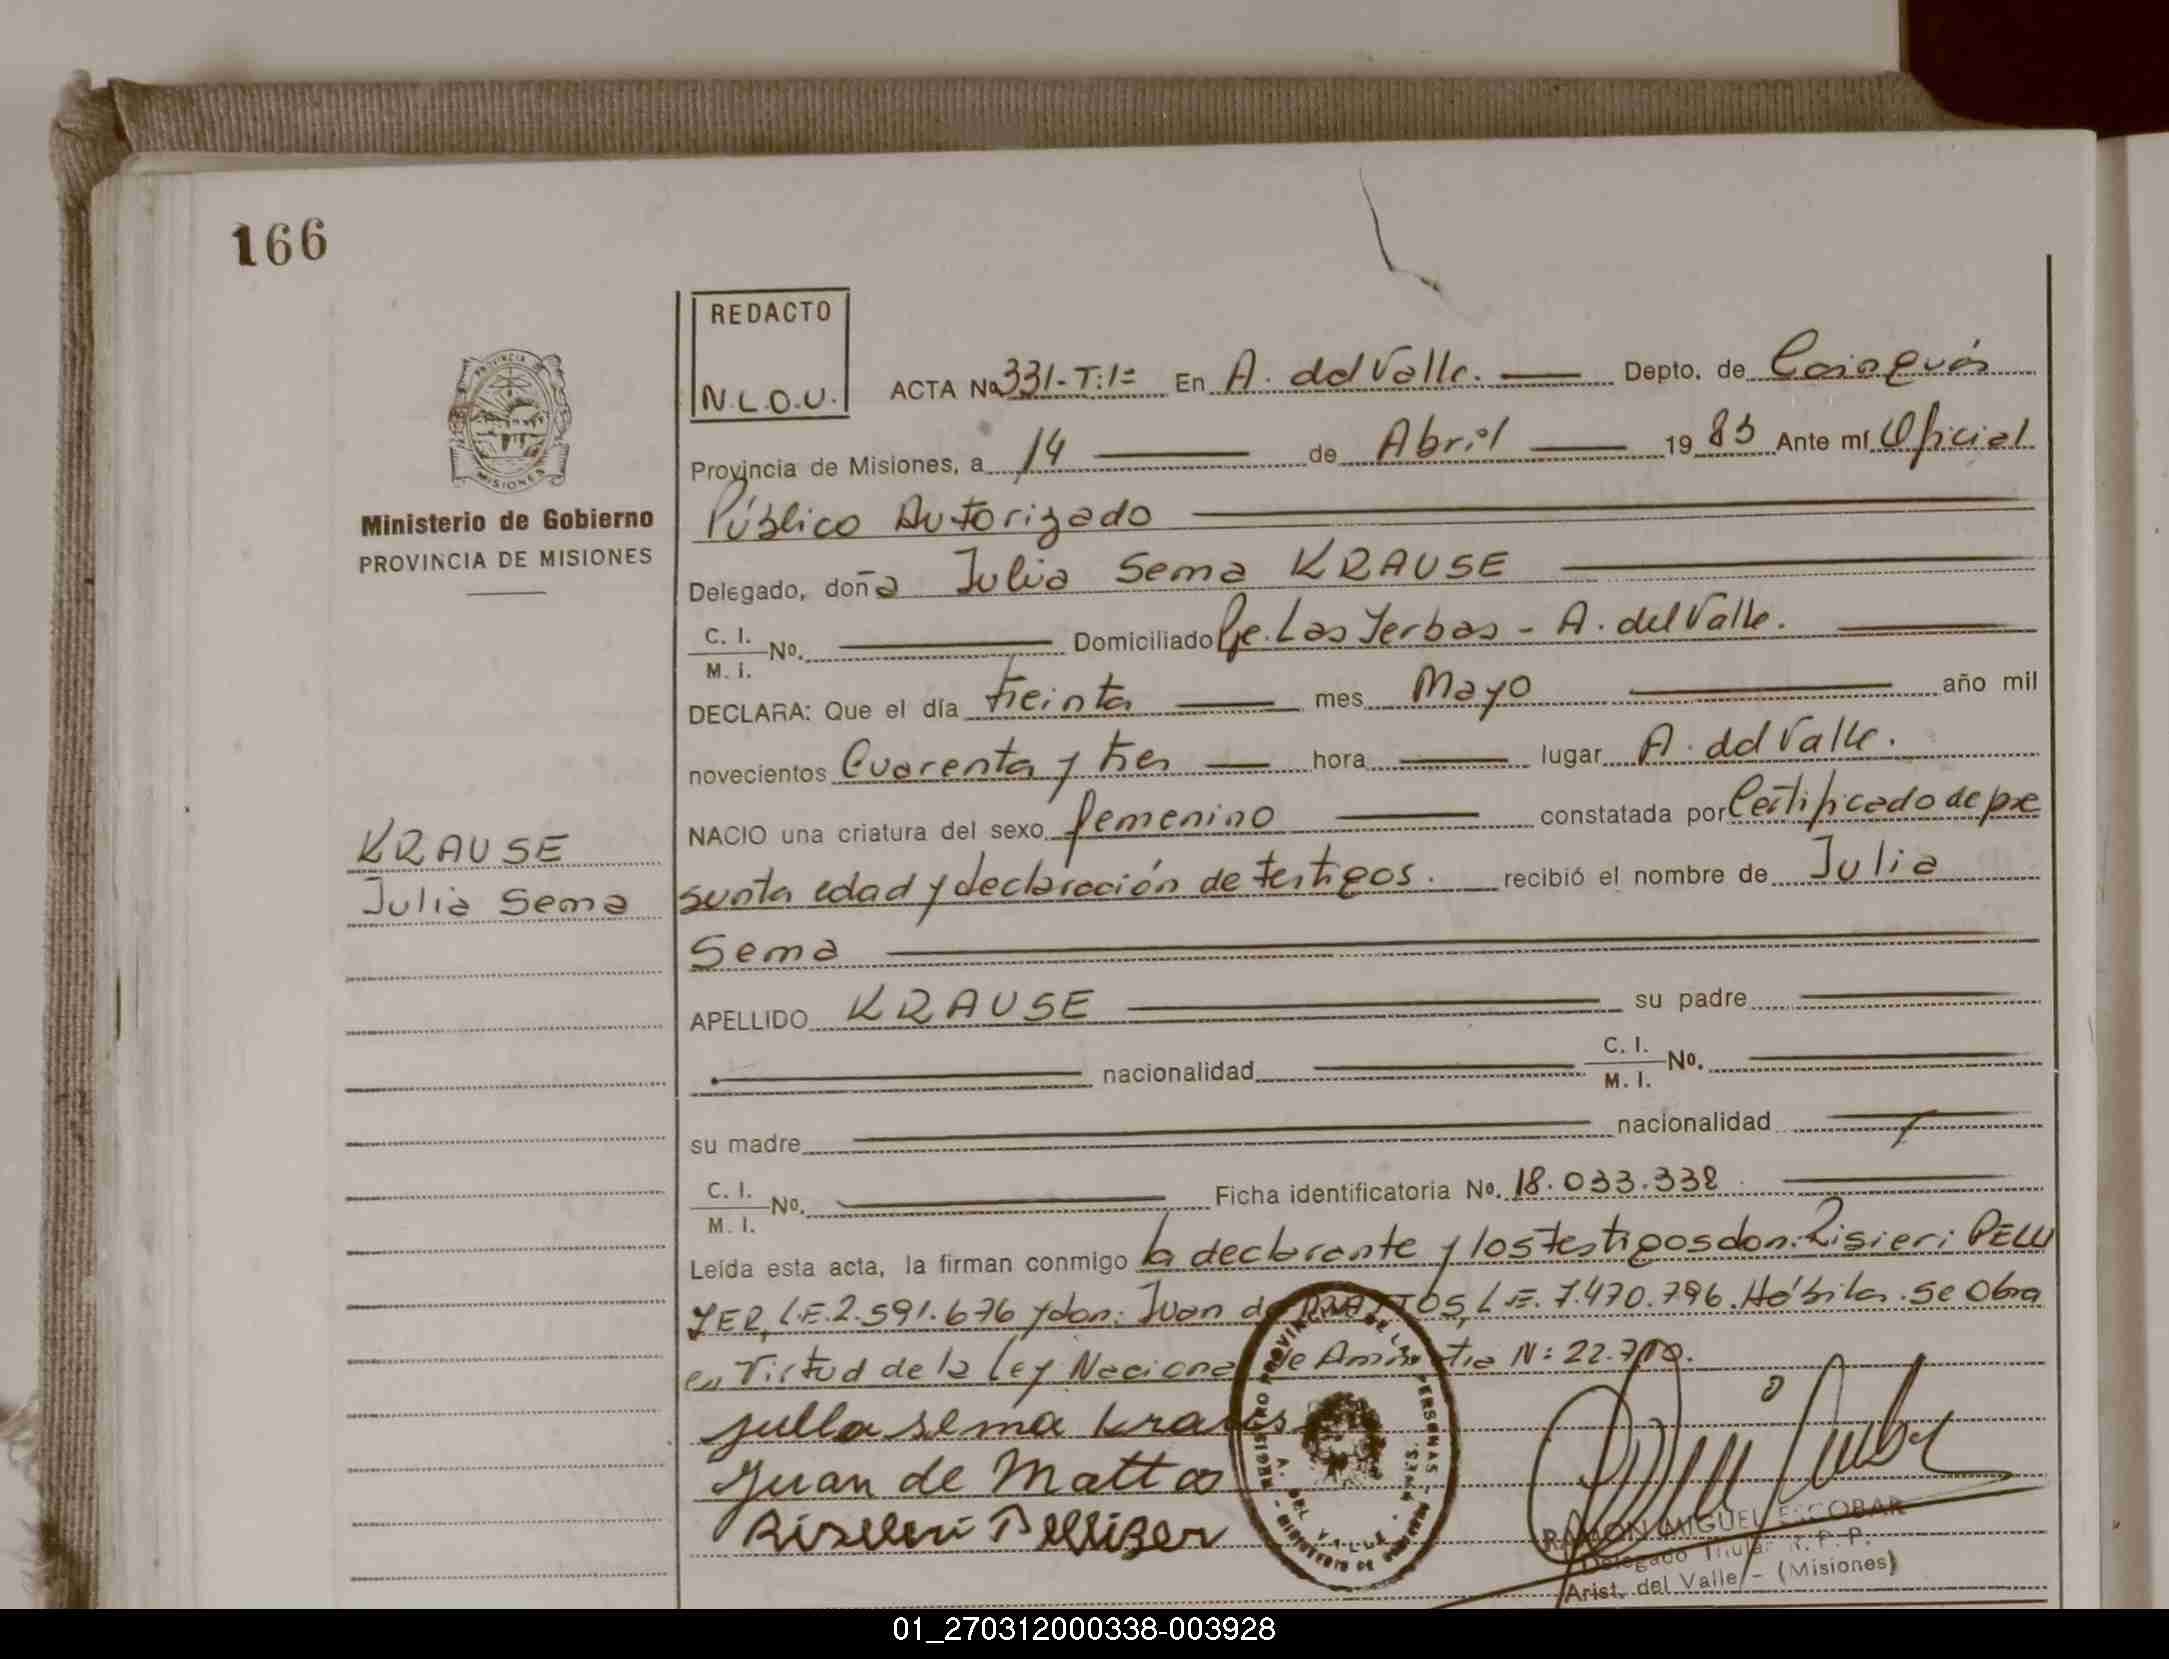 166
REDACTO
N.L.O.U.
ACTA No 331-T:1º En A. del Valle. Depto. de Cainguás
PROVINCIA
MISIONES
Provincia de Misiones, a 14 de Abril 1983 Ante mí Oficial
Ministerio de Gobierno
PROVINCIA DE MISIONES
Público Autorizado
Delegado, doña Julia Sema KRAUSE
C. I.
M. I. No. Domiciliado Pje. Las Yerbas - A. del Valle.
DECLARA: Que el día treinta mes Mayo año mil
novecientos Cuarenta y tres hora lugar A. del Valle.
NACIO una criatura del sexo femenino constatada por Certificado de pre
KRAUSE
Julia Sema
sunta edad y declaración de testigos. recibió el nombre de Julia
Sema
APELLIDO KRAUSE su padre
nacionalidad C. I.
M. I. No.
su madre nacionalidad
C. I.
M. I. No. Ficha identificatoria No. 18.033.338
Leída esta acta, la firman conmigo la declarante y los testigos don: Risieri PELLI
ZER, L.E. 2.591.676 y don: Juan de MATTOS, L.E. 7.470.796. Hábiles. Se obra
en virtud de la Ley Nacional de Amnistia N: 22.710.
Julia Sema Kraus
Juan de Mattos
Riselleri Pellizer
REGISTRO PROVINCIAL DE LAS PERSONAS
A. DEL VALLE - MNES.
MINISTERIO DE GOBIERNO
RAMON MIGUEL ESCOBAR
Delegado Titular R. P. P.
Arist. del Valle - (Misiones)
01_270312000338-003928